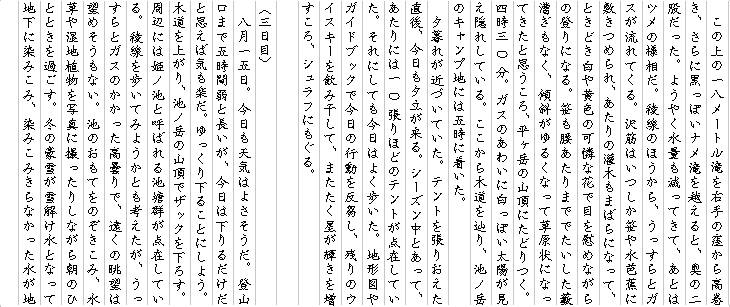 この上の一八メートル滝を右手の窪から高巻
き、さらに黒っぽいナメ滝を越えると、奥の二
股だった。ようやく水量も減ってきて、あとは
ツメの様相だ。稜線のほうから、うっすらとガ
スが流れてくる。沢筋はいつしか笹や水芭蕉に
敷きつめられ、あたりの灌木もまばらになって、
ときどき白や黄色の可憐な花で目を慰めながら
の登りになる。笹も腰あたりまででたいした藪
漕ぎもなく、傾斜がゆるくなって草原状になっ
てきたと思うころ、平ヶ岳の山頂にたどりつく。
四時三〇分。ガスのあわいに白っぽい太陽が見
え隠れしている。ここから木道を辿り、池ノ岳
のキャンプ地には五時に着いた。
夕暮れが近づいていた。テントを張りおえた
直後、今日も夕立が来る。シーズン中とあって、
あたりには一〇張りほどのテントが点在してい
た。それにしても今日はよく歩いた。地形図や
ガイドブックで今日の行動を反芻し、残りのウ
イスキーを飲み干して、またたく星が輝きを増
すころ、シュラフにもぐる。
〈三日目〉
八月一五日。今日も天気はよさそうだ。登山
口まで五時間弱と長いが、今日は下りるだけだ
と思えば気も楽だ。ゆっくり下ることにしよう。
木道を上がり、池ノ岳の山頂でザックを下ろす。
周辺には姫ノ池と呼ばれる池塘群が点在してい
る。稜線を歩いてみようかとも考えたが、うっ
すらとガスのかかった高曇りで、遠くの眺望は
望めそうもない。池のおもてをのぞきこみ、水
草や湿地植物を写真に撮ったりしながら朝のひ
とときを過ごす。冬の豪雪が雪解け水となって
地下に染みこみ、染みこみきらなかった水が地